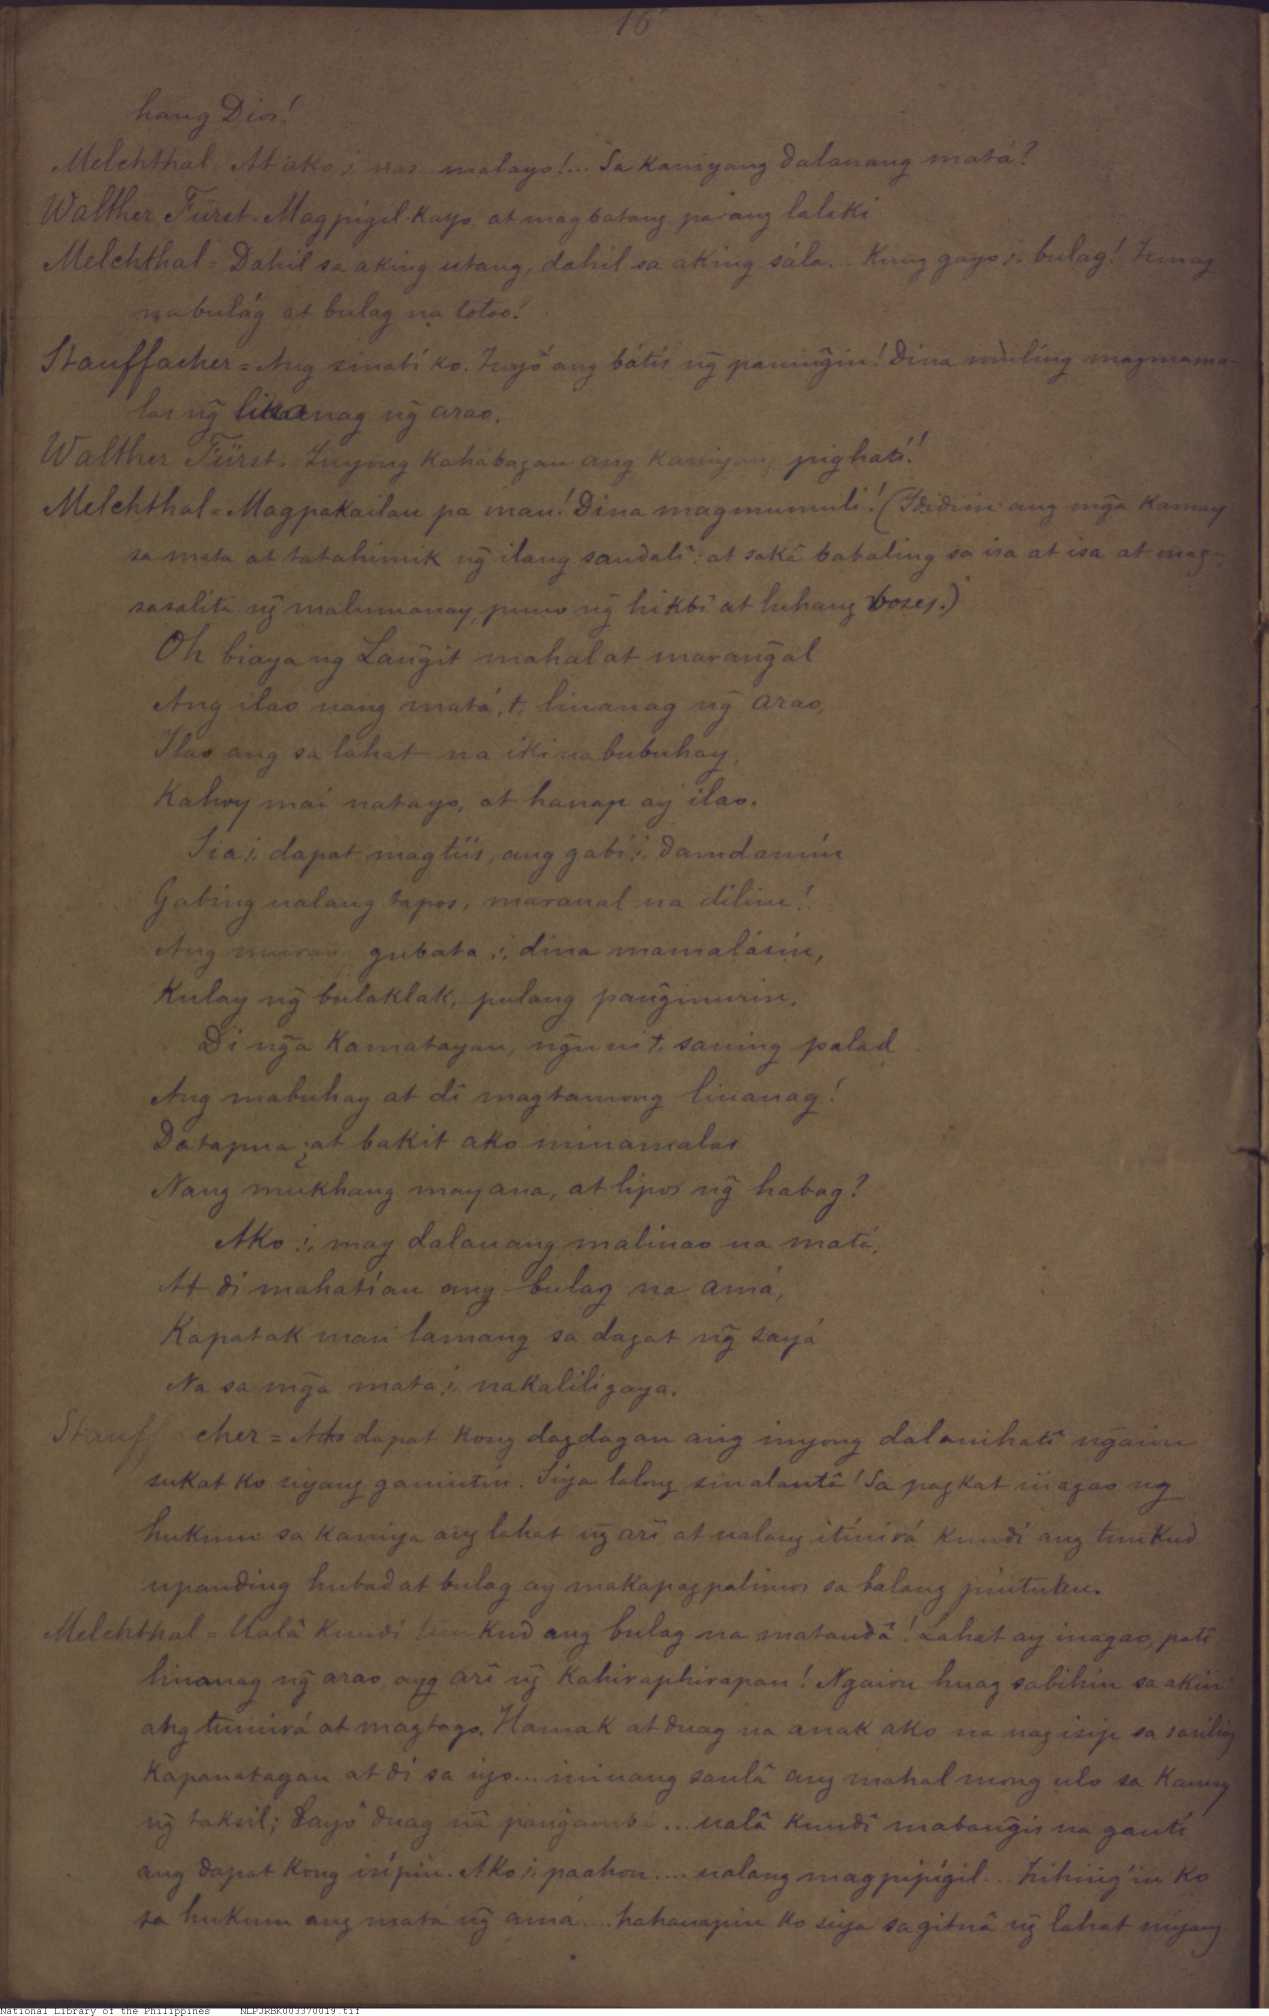 16
hang Dios!
Melchthal. At ako,i, nas malayo!... Sa kaniyang dalauang matá?
Walther Fürst. Magpigil kayo at magbatang pa ang lalaki
Melchthal = Dahil sa aking utang, dahil sa aking sála... Kung gayo,i, bulag! Tunay
na bulág at bulag na totoo!
Stauffacher = Ang sinabi ko. Tuyô ang bátis ng̃ paning̃in! Dina muling magmama-
las ng̃ liwanag ng̃ arao.
Walther Fürst. Inyong kahabagan ang kaniyang pighatî!
Melchthal = Magpakailan pa man! Dina magmumuli! (Ididiin ang mg̃a kamay
sa mata at tatahimik ng̃ ilang sandalî; at sakâ babaling sa isa at isa at mag-
sasalita ng̃ malumanay, puno ng̃ hikbî at luhang boses.)
Oh biaya ng Lang̃it mahal at marang̃al
Ang ilao nang matá,t, linanag ng̃ arao,
Ilao ang sa lahat na ikinabubuhay,
Kahoy mai natayo, at hanap ay ilao.
Sia,i, dapat magtiis, ang gabi,i, damdamin
Gabing ualang tapos, maraual na dilim!
Ang gubata,i, dina mamalásin,
Kulay ng̃ bulaklak, pulang pang̃inurin.
Di ng̃a kamatayan, ng̃uni,t, saming palad
Ang mabuhay at dî magtamong linanag!
Datapua ¿at bakit ako minamalas
Nang mukhang mayaua, at lipos ng̃ habag?
Ako,i, may dalauang malinao na matá,
At di mahatian ang bulag na amá,
Kapatak man lamang sa dagat ng̃ sayá
Na sa mg̃a mata,i, nakaliligaya.
Stauffacher = At dapat kong dagdagan ang inyong dalamhatî ng̃aiun
sukat ko niyang gamutin. Siya lalong sinalantâ! Sa pagkat iniagao ng
hukum sa kaniya ang lahat ng̃ arî at ualang itinirá kundî ang tungkud
upanding hubad at bulag ay makapagpalimos sa balang pintuhan.
Melchthal = Ualâ kundî tungkud ang bulag na matandâ! Lahat ay inagao, patî
linanag ng̃ arao ang arî ng̃ kahiraphirapan! Ngaion huag sabihin sa akin
ang tumirá at magtago. Hamak at duag na anak ako na nagisip sa sariling
kapanatagan at di sa iyo... minang sanlâ ang mahal mong ulo sa kamay
ng̃ taksil; Layô duag na pang̃amba ... ualâ kundî mabang̃is na gantî
ang dapat kong isípin. Ako,i, paahon .... ualang magpipígil... hihing̃in ko
sa hukum ang matá ng̃ amá .... hahanapin ko siya sa gitnâ ng̃ lahat niyang
National Library of the Philippines NLPJRBK003370019.tif